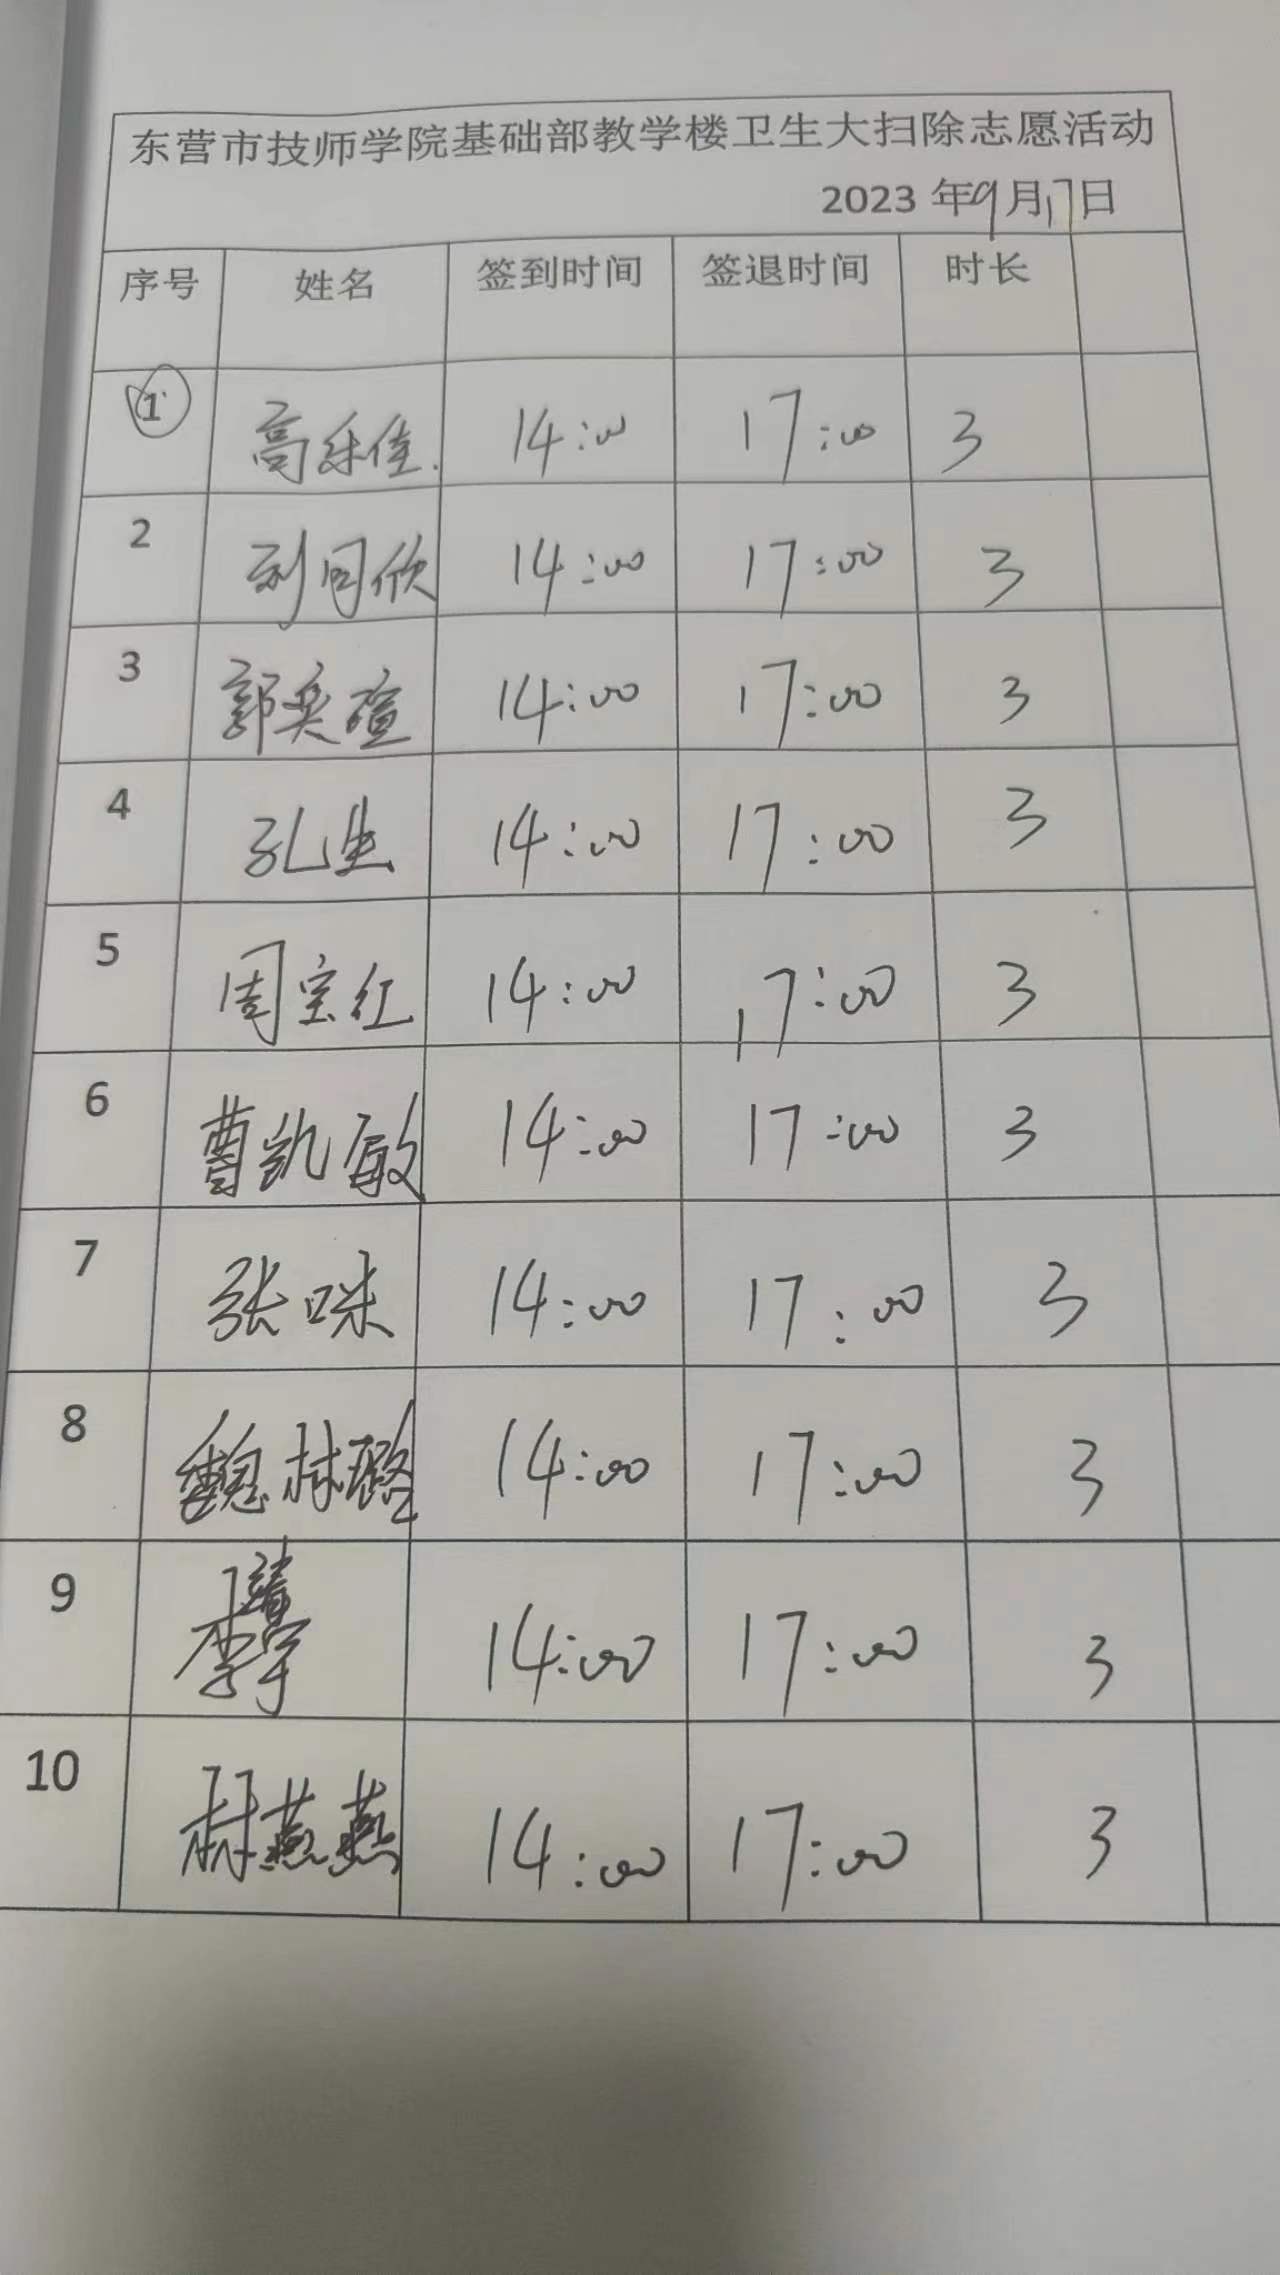 东营市技师学院基础部教学楼卫生大扫除志愿活动
2023 年9月17日
序号 姓名 签到时间 签退时间 时长
1 高乐佳. 14:00 17:00 3
2 刘同欣 14:00 17:00 3
3 郭奕萱 14:00 17:00 3
4 孔生 14:00 17:00 3
5 周宝红 14:00 17:00 3
6 曹凯敏 14:00 17:00 3
7 张咪 14:00 17:00 3
8 魏林璐 14:00 17:00 3
9 李 14:00 17:00 3
10 林燕燕 14:00 17:00 3